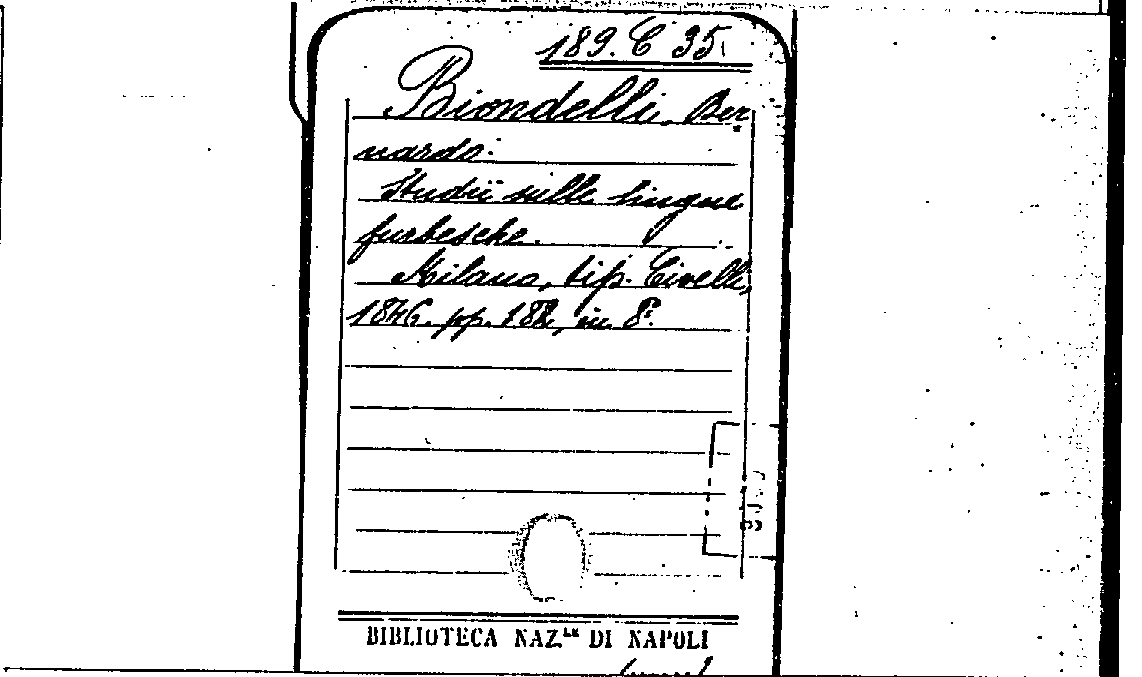 189. C 35.
Biondelli, Ber
nardo.
Studii sulle lingue
furbesche.
Milano, tip. Civelli,
1846. pp. 182, in 8°.
BIBLIOTECA NAZ.LE DI NAPOLI